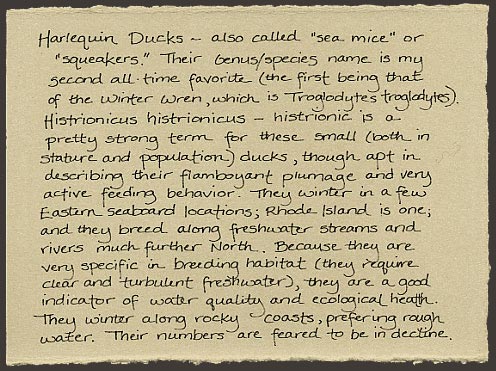 Harlequin Ducks - also called "sea mice" or
"squeakers." Their Genus/species name is my
second all-time favorite (the first being that
of the Winter Wren, which is Troglodytes troglodytes).
Histrionicus histrionicus - histrionic is a
pretty strong term for these small (both in
stature and population) ducks, though apt in
describing their flamboyant plumage and very
active feeding behavior. They winter in a few
Eastern seaboard locations; Rhode Island is one;
and they breed along freshwater streams and
rivers much further North. Because they are
very specific in breeding habitat (they require
clear and turbulent freshwater), they are a good
indicator of water quality and ecological health.
They winter along rocky coasts, prefering rough
water. Their numbers are feared to be in decline.